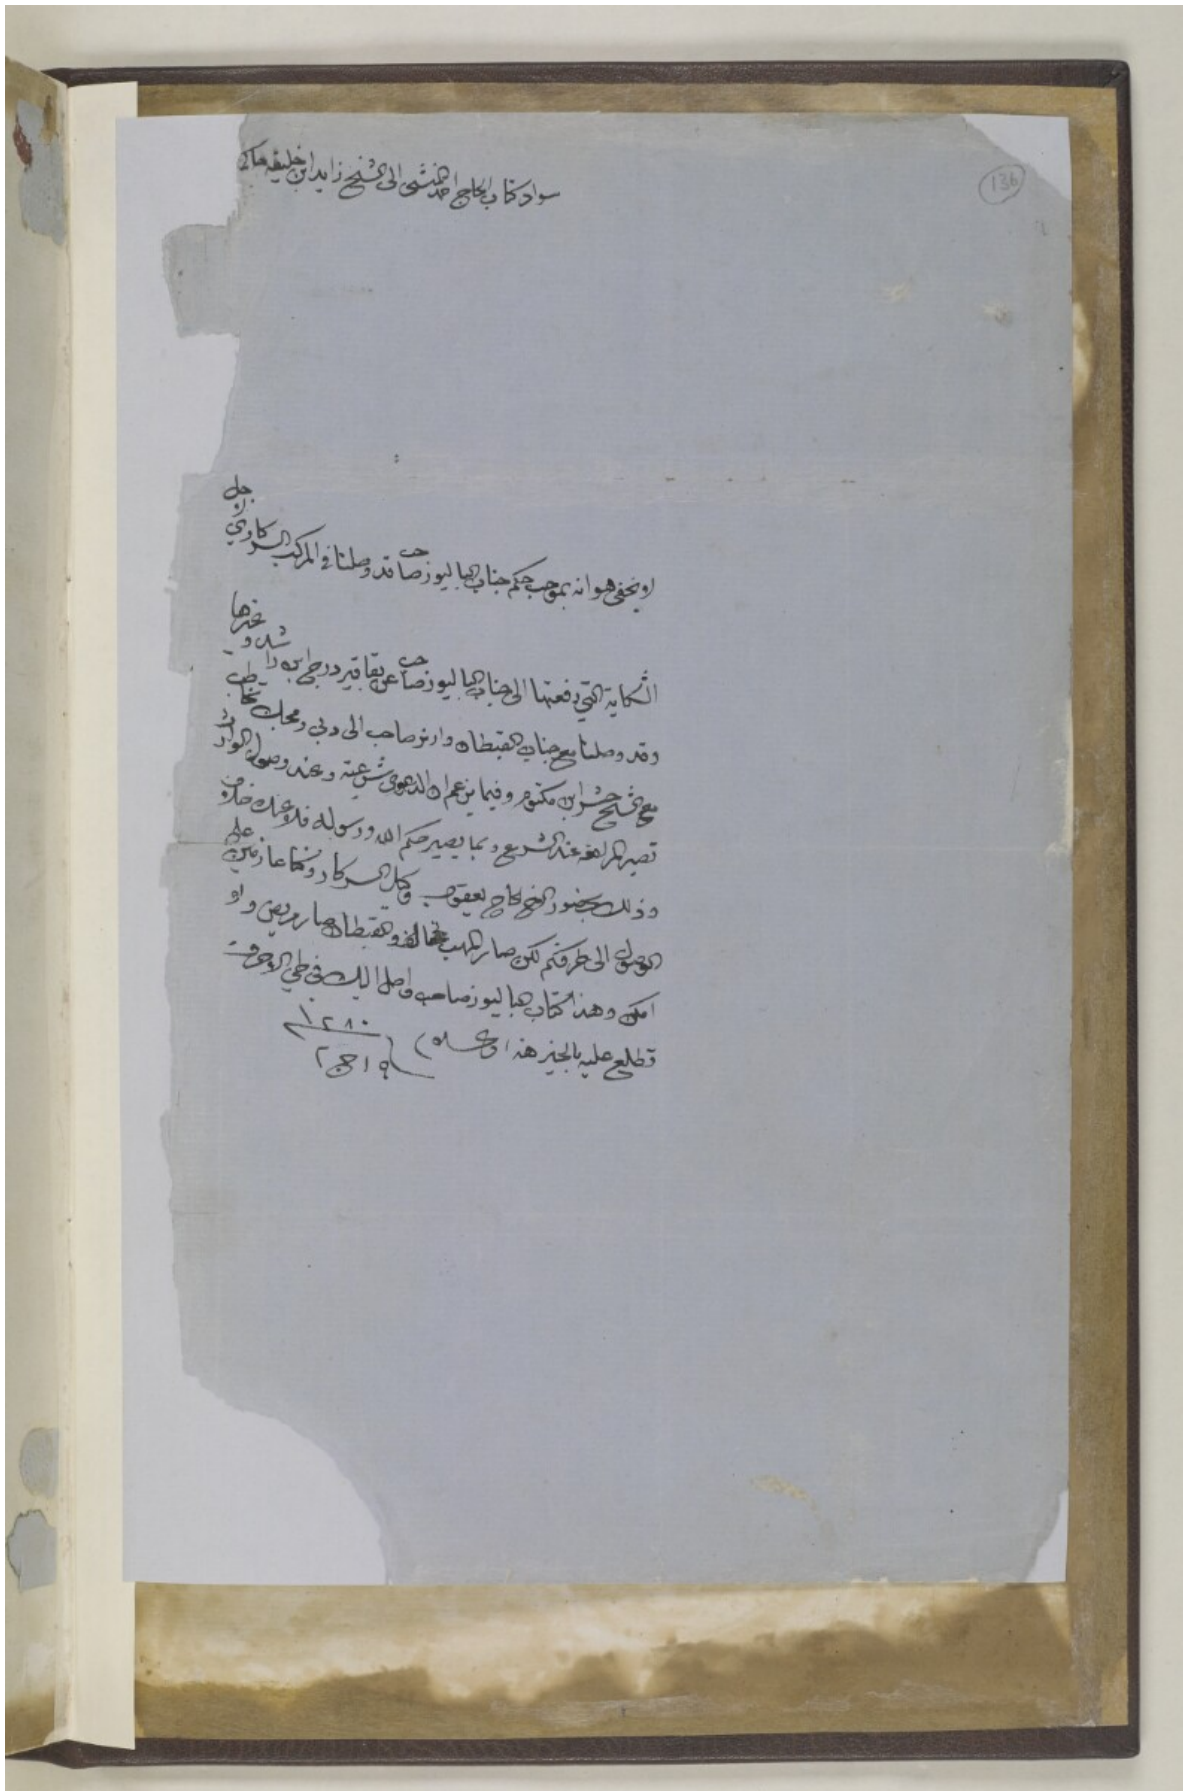 136
سواد كتاب الحاج احمد المنشي الى الشيخ زايد ابن خليفه حاكم
لا يخفى هو انه بموجب حكم جناب الباليوز صاحب قد وصلنا في المركب السركاري لاجل
الشكاية التي رفعتها الى جناب الباليوز صاحب عن بقاقير درجي ابن راشد وغيرها
وقد وصلنا مع جناب القبطان وارنر صاحب الى دبي ومحبك تخاطب
مع الشيخ حشر ابن مكتوم وفيما يزعم ان الدعوى شرعية وعند وصول الوارث
تصير المرافعه عند الشرع وبما يصير حكم الله ورسوله فلا عنك خلاف
وذلك بحضور الاخ الحاج يعقوب وكيل السركار وكنا عازمين على
الوصول الى طرفكم لكن صار الهب مخالف والقبطان صار مريض ولا
امكن وهذا كتاب الباليوز صاحب واصل اليك في طي الاحرف
تطلع عليه بالخير هذا والسلام
١٩ ج ٢ ١٢٨٠